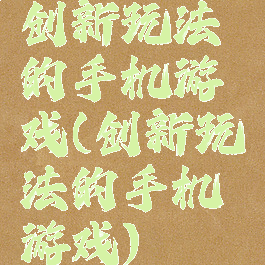 创新玩法
的手机游
戏(创新玩
法的手机
游戏)